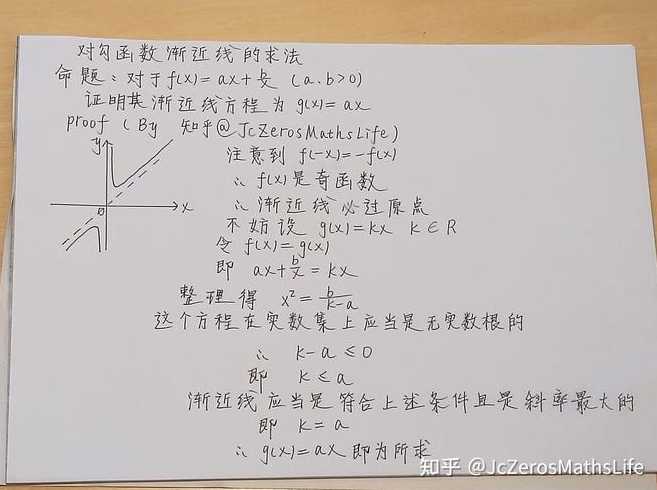 对勾函数渐近线的求法
命题：对于f(x)=ax+b/x (a、b>0)
证明其渐近线方程为g(x)=ax
proof (By 知乎@JcZerosMathsLife)
y
O
x
注意到 f(-x)=-f(x)
∴ f(x)是奇函数
∴ 渐近线必过原点
不妨设 g(x)=kx k∈R
令 f(x)=g(x)
即 ax+b/x=kx
整理得 x²=b/(k-a)
这个方程在实数集上应当是无实数根的
∴ k-a≤0
即 k≤a
渐近线应当是符合上述条件且是斜率最大的
即 k=a
∴ g(x)=ax 即为所求
知乎 @JcZerosMathsLife